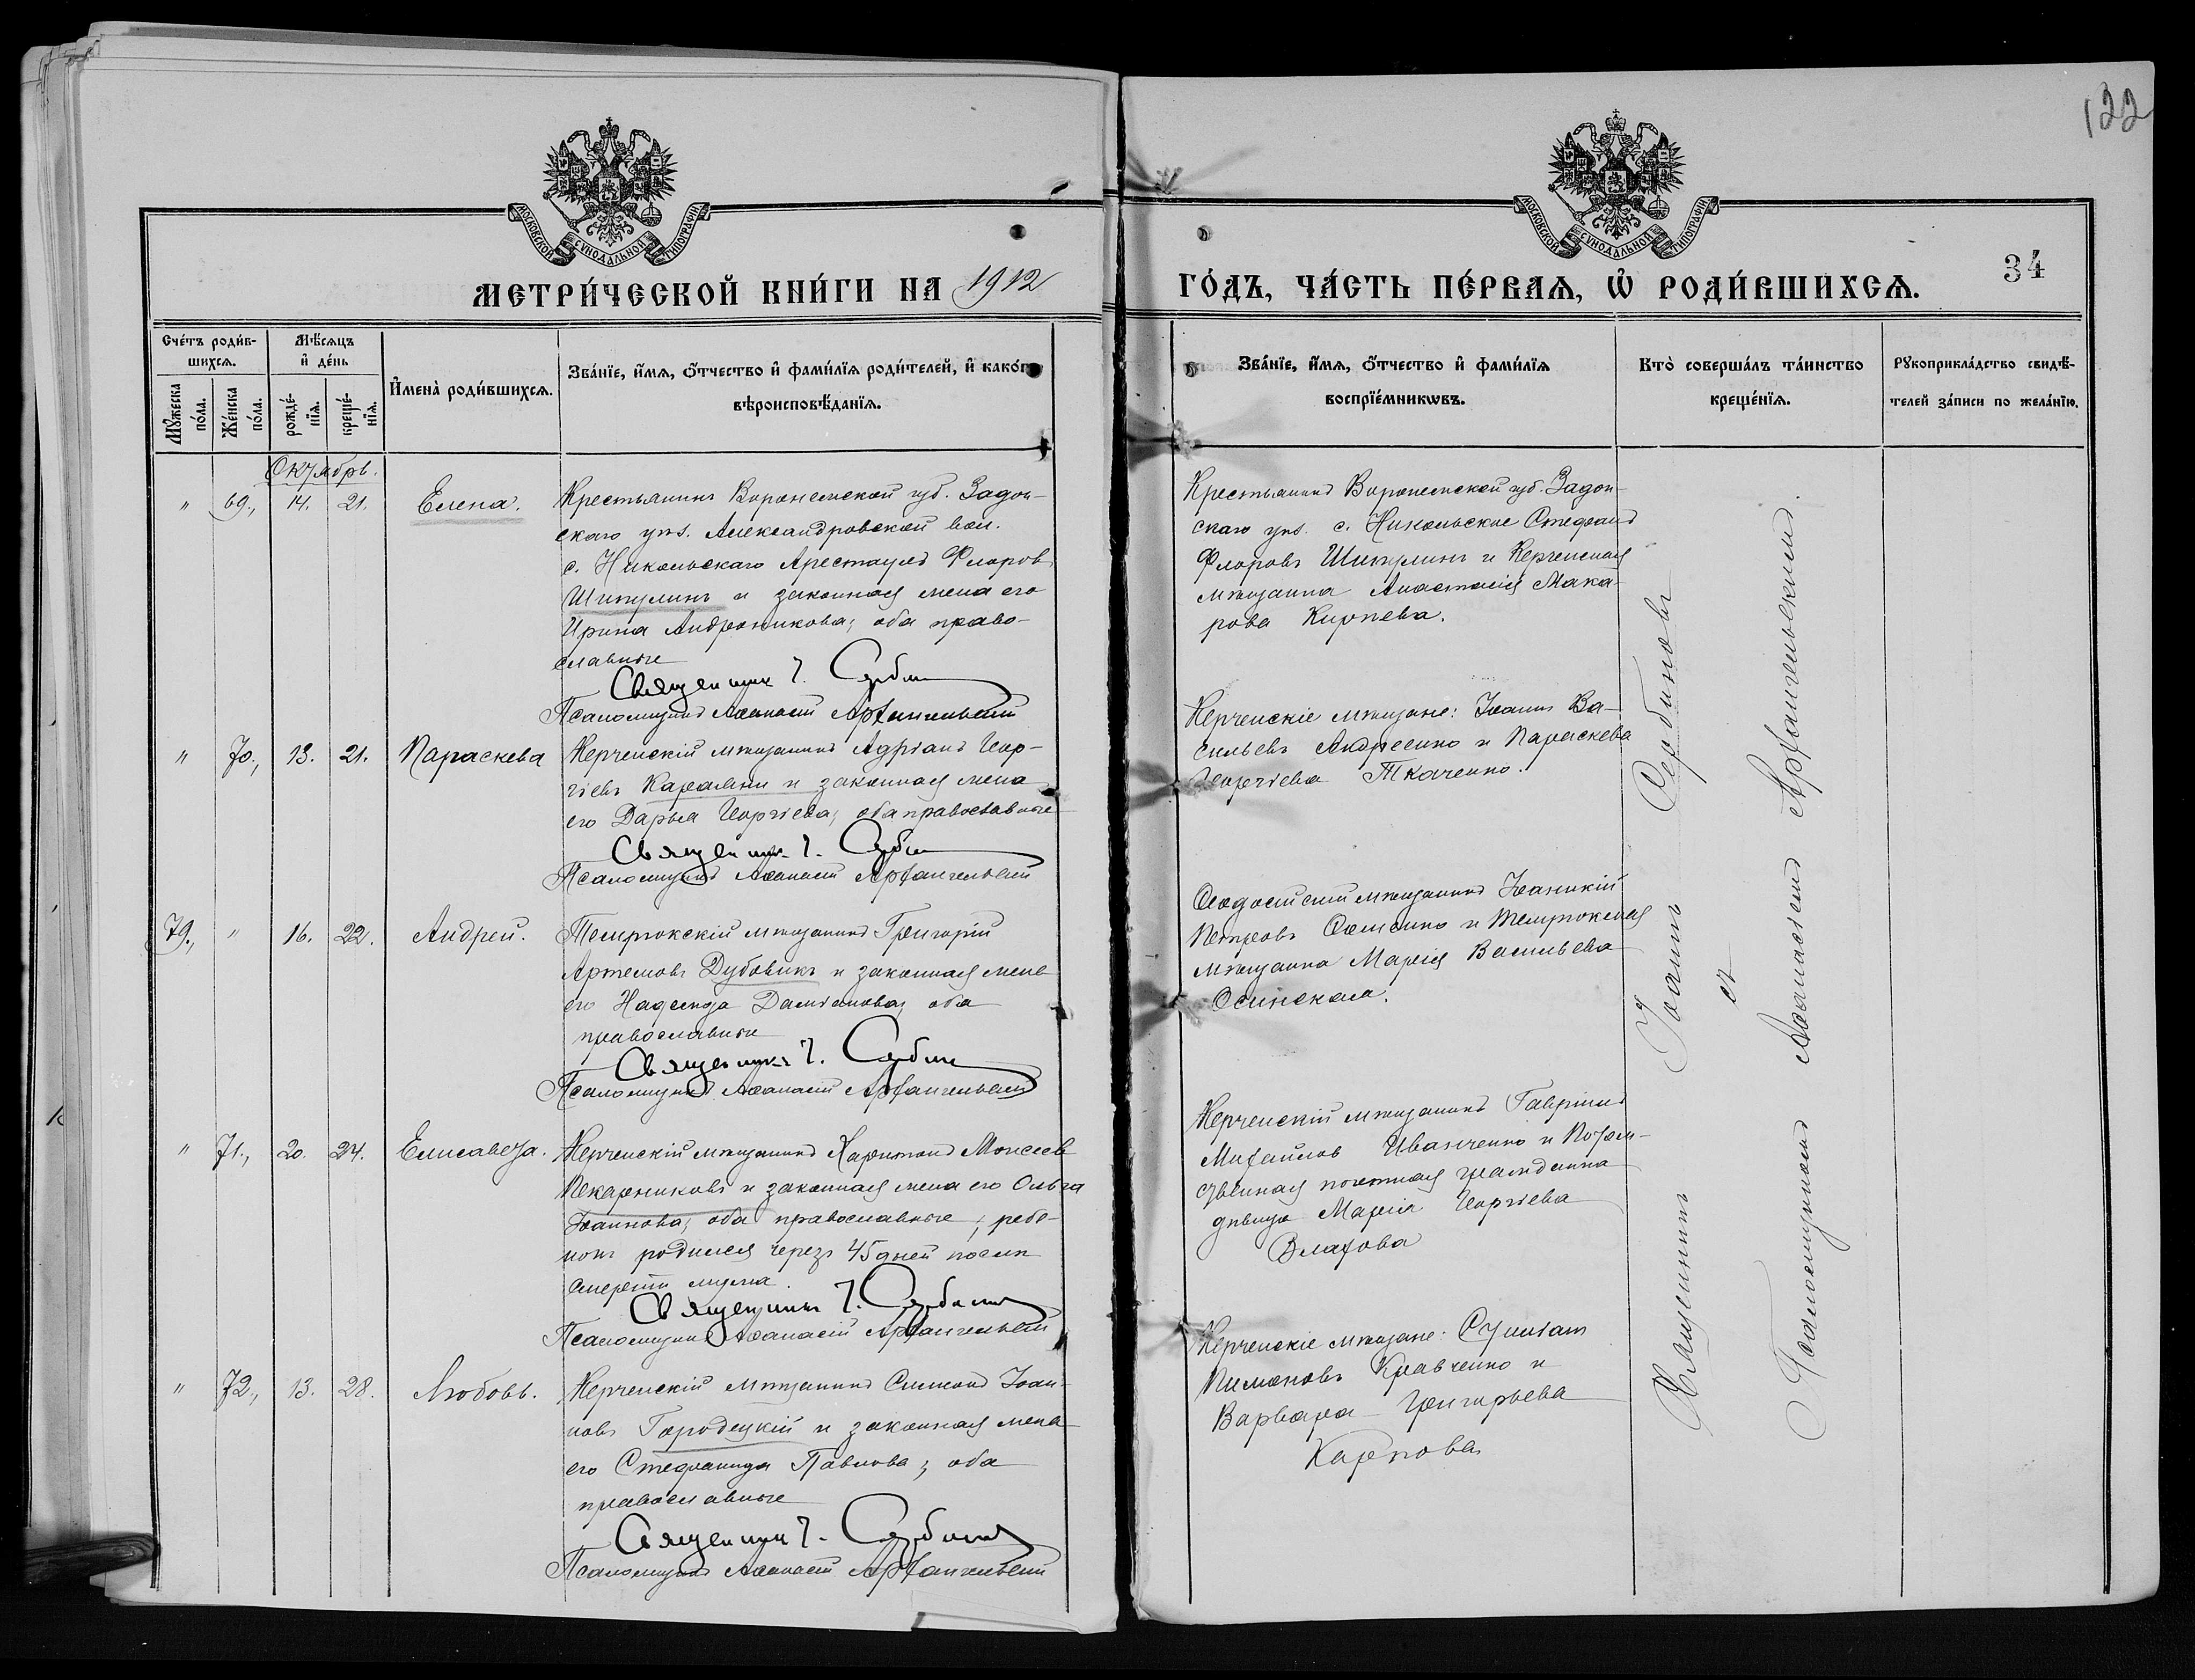 122
МОСКОВСКОЙ СѴНОДАЛЬНОЙ ТИПОГРАФІИ
МОСКОВСКОЙ СѴНОДАЛЬНОЙ ТИПОГРАФІИ
МЕТРИ́ЧЕСКОЙ КНИ́ГИ НА 1912
ГО́ДЪ, ЧА́СТЬ ПЕ́РВАѦ, Ѡ҆ РОДИ́ВШИХСѦ.
34
Сче́тъ роди́в-
шихсѧ.
Мѣ́сѧцъ
и҆ де́нь
Мꙋжеска
по́ла.
Же́нска
по́ла.
рожде́-
нїѧ.
креще́-
нїѧ.
И҆мена̀ роди́вшихсѧ.
Зва́нїе, и҆́мѧ, ѻ҆́тчество и҆ фами́лїѧ роди́телей, и҆ како́гѡ
вѣроисповѣ́данїѧ.
Зва́нїе, и҆́мѧ, ѻ҆́тчество и҆ фами́лїѧ
воспрїе́мникѡвъ.
Кто̀ соверша́лъ та́инство
креще́нїѧ.
Рꙋкоприкла́дство свидѣ́-
телей за́писи по жела́нїю.
Октябрь.
" 69., 14. 21. Елена.
Крестьянинъ Воронежской губ. Задон-
скаго уѣз. Александровской вол.
с. Никольскаго Арестаулъ Флоровъ
Шипулинъ и законная жена его
Ирина Андроникова; оба право-
славные
Священникъ І. Сербиновъ
Псаломщикъ Аѳанасій Архангельскій
Крестьянинъ Воронежской губ. Задон-
скаго уѣз. с. Никольское Стефанъ
Флоровъ Шипулинъ и Керченская
мѣщанка Анастасія Мака-
рова Кирпева.
" 70., 13. 21. Параскева
Керченскій мѣщанинъ Адріанъ Геор-
гіевъ Караяни и законная жена
его Дарья Георгіева; оба православные
Священникъ І. Сербиновъ
Псаломщикъ Аѳанасій Архангельскій
Керченскіе мѣщане: Іоаннъ Ва-
сильевъ Андреенко и Параскева
Георгіева Ткаченко.
79., " 16. 22. Андрей.
Темрюкскій мѣщанинъ Григорій
Артемовъ Дубовикъ и законная жена
его Надежда Даміанова; оба
православные
Священникъ І. Сербиновъ
Псаломщикъ Аѳанасій Архангельскій
Ѳеодосійскій мѣщанинъ Іоаникій
Петровъ и Темрюкская
мѣщанка Марія Васильева
Осинская.
" 71., 20. 24. Елисавета.
Керченскій мѣщанинъ Харитонъ Моисеевъ
Пекарниковъ и законная жена его Ольга
Іоаннова; оба православные; ребе-
нокъ родился черезъ 45 дней послѣ
смерти мужа.
Священникъ І. Сербиновъ
Псаломщикъ Аѳанасій Архангельскій
Керченскій мѣщанинъ Гавріилъ
Михайловъ Иванченко и Потом-
ственная почетная гражданка
дѣвица Марія Георгіева
Влахова
" 72., 13. 28. Любовь.
Керченскій мѣщанинъ Симеонъ Іоан-
новъ Городецкій и законная жена
его Стефанида Павлова; оба
православные
Священникъ І. Сербиновъ
Псаломщикъ Аѳанасій Архангельскій
Керченскіе мѣщане:
Пименовъ Кравченко и
Варвара Григорьева
Карпова
Священникъ Іоаннъ Сербиновъ
съ
Псаломщикомъ Аѳанасіемъ Архангельскимъ.